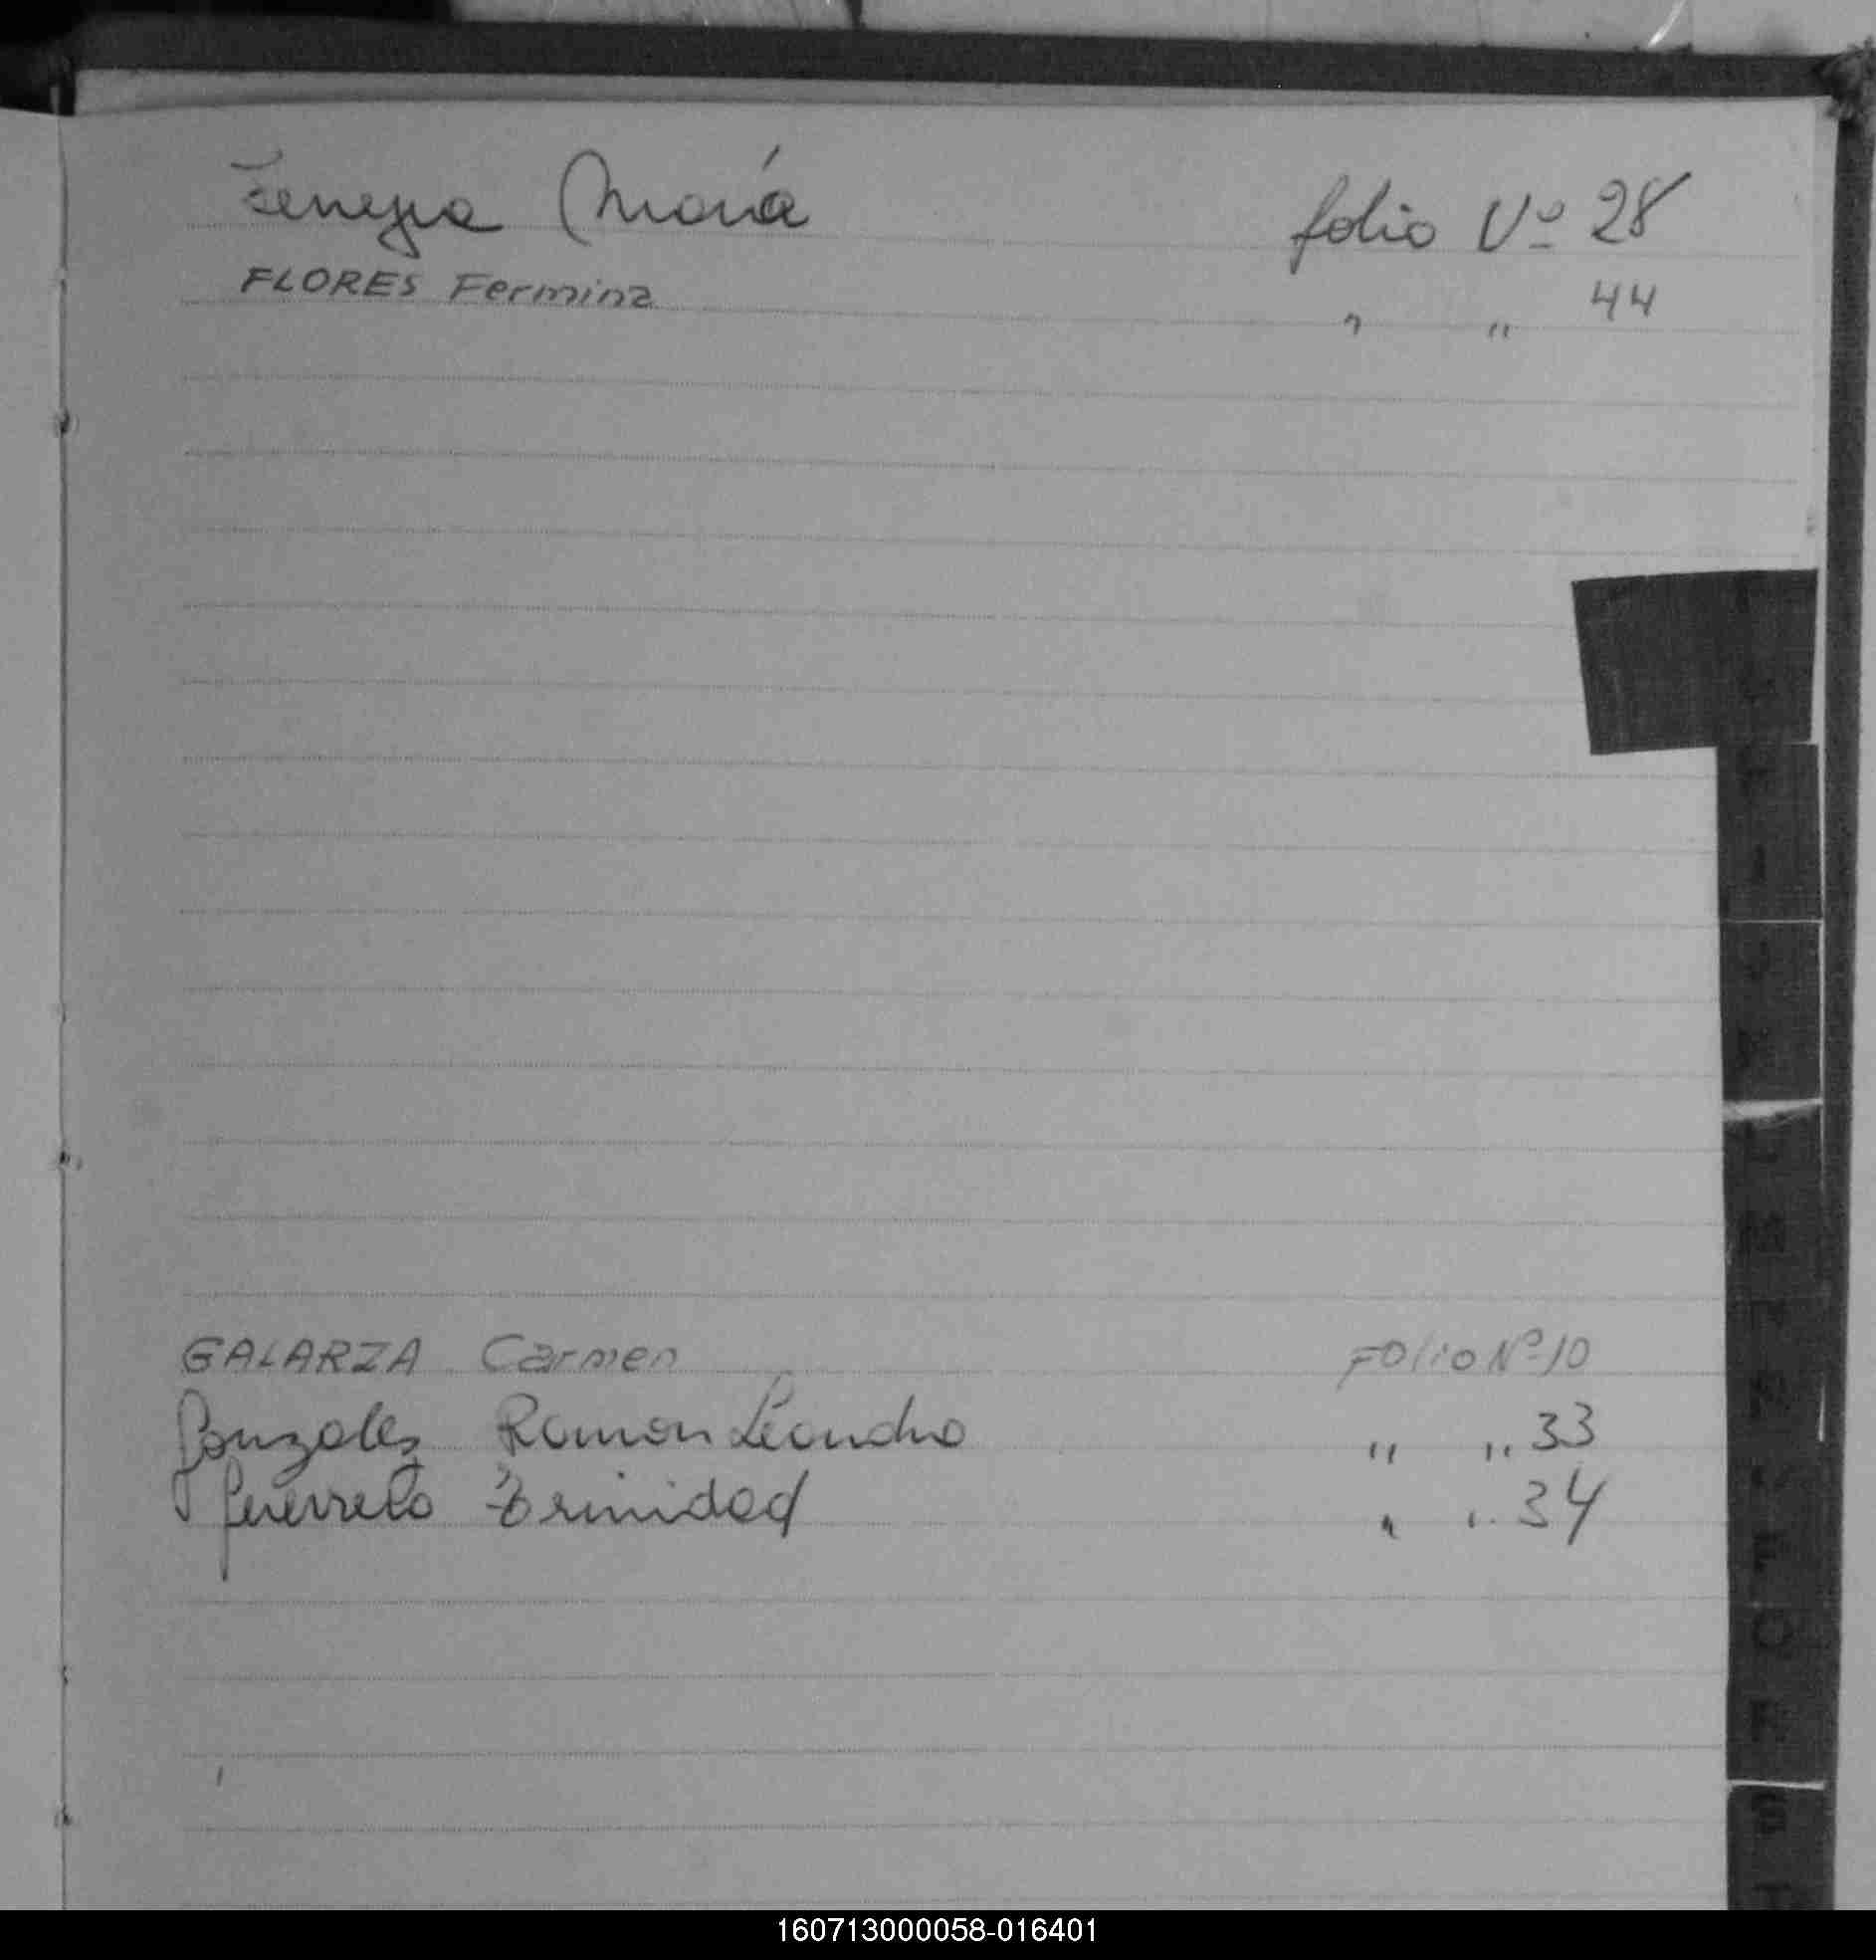 María folio Nº 28
FLORES Fermina " " 44
GALARZA Carmen FOLIO Nº 10
Gonzalez Ramon Leandro " " 33
Guerrero Trinidad " " 34
160713000058-016401